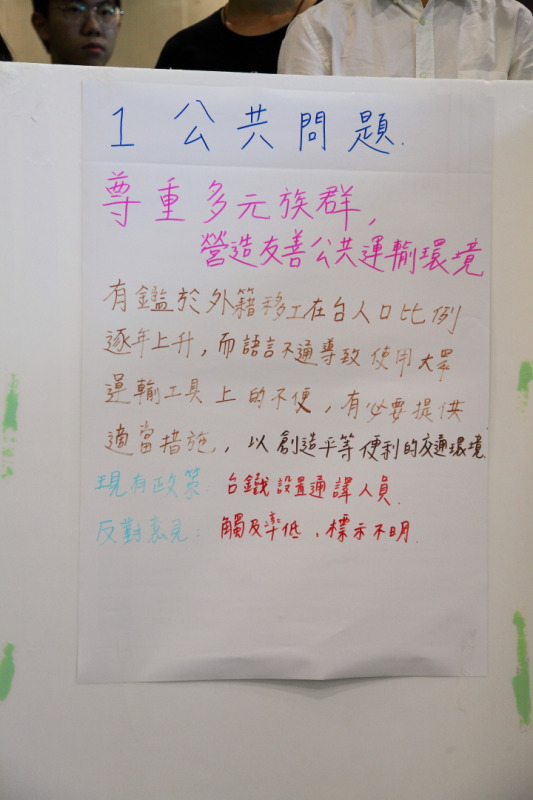 1 公共問題.
尊重多元族群,
營造友善公共運輸環境
有鑑於外籍移工在台人口比例
逐年上升,而語言不通導致使用大眾
運輸工具上的不便,有必要提供
適當措施,以創造平等便利的交通環境.
現有政策:台鐵設置通譯人員.
反對意見:觸及率低、標示不明.